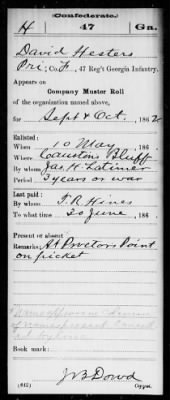 Confederate.
H 47 Ga.
David Hesters
Pri, Co. F, 47 Reg't Georgia Infantry.
Appears on
Company Muster Roll
of the organization named above,
for Sept & Oct, 1862
Enlisted:
When 10 May, 186 .
Where Caustons Bluff
By whom Jas. H. Latimer
Period 3 years or war
Last paid:
By whom T. R. Hines
To what time 30 June, 186 .
Present or absent
Remarks: At Proctors Point
on picket
Book mark:
J W B Dowd
(642) Copyist.